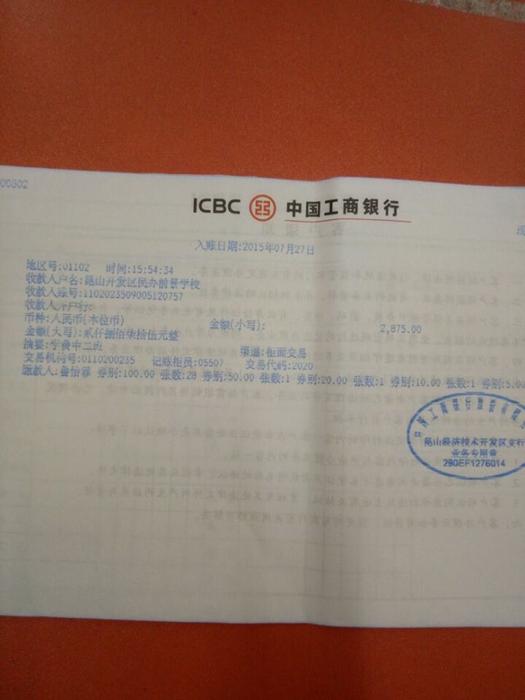 00802
ICBC 中国工商银行
入账日期:2015年07月27日
地区号:01102 时间:15:54:34
收款人户名:昆山开发区民办前景学校
收款人账号:1102023509005120757
收款人开户行:
币种:人民币(本位币) 金额(小写): 2,875.00
金额(大写):贰仟捌佰柒拾伍元整
摘要:学费中二班 渠道:柜面交易
交易机构号:0110200235 记账柜员:05507 交易代码:2020
缴款人: 券别:100.00 张数:28 券别:50.00 张数:1 券别:20.00 张数:1 券别:10.00 张数:1 券别:5.00
中国工商银行股份有限
昆山经济技术开发区支行
业务专用章
290EF1276014